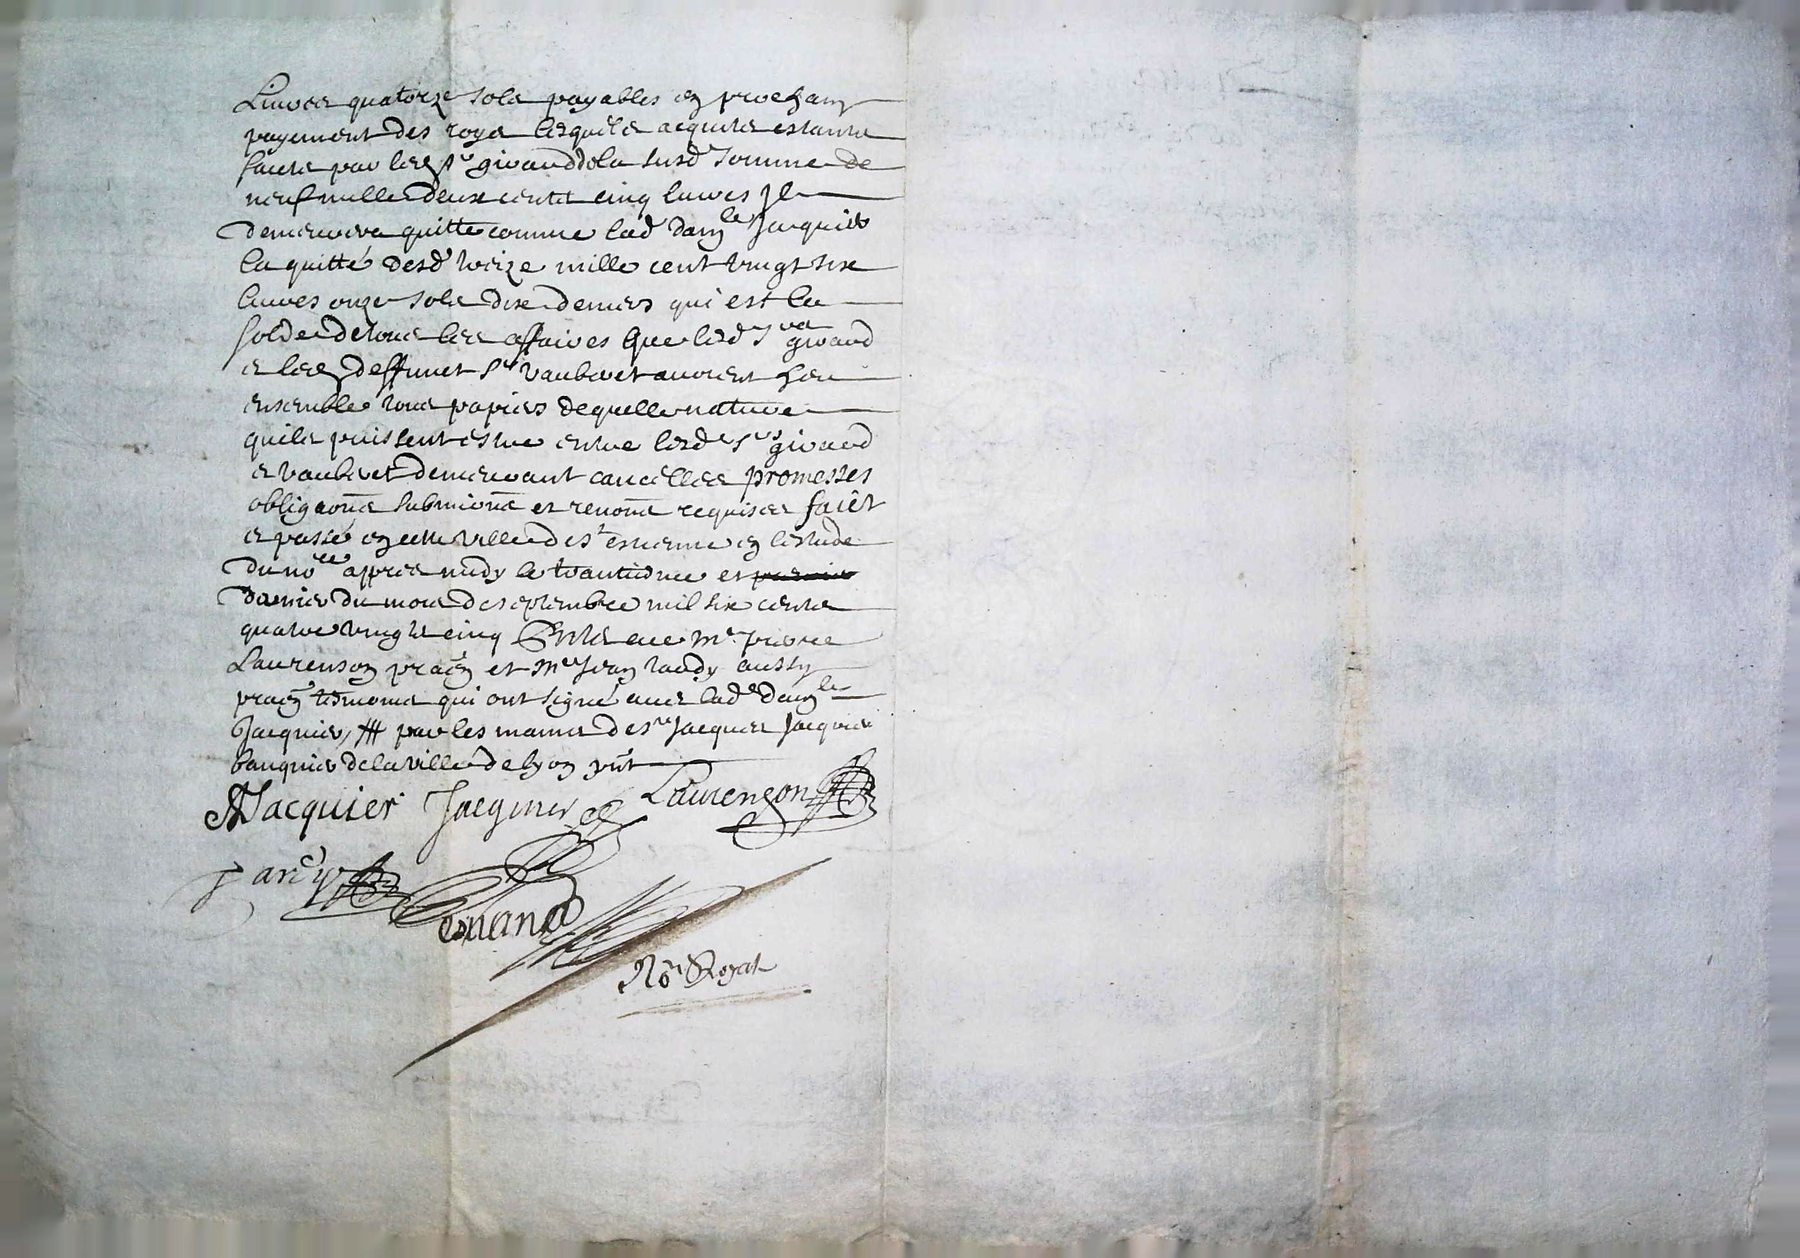 Livres quatorze sols payables en prochain
payement des roys lesquels acquits estants
faicts par led sr giraud de la susd somme de
neuf mille deux cents cinq livres Il
demeurera quitte comme lad damlle Jacquier
la quitte desd treize mille cent vingt six
livres onze sols dix deniers qui est la
solde de tous les affaires que lesd srs giraud
e led deffunct sr vauberet avoient heu
ensemble tous papiers de quelle nature
quils puissent estre entre lesd srs giraud
e vauberet demeurant cancellés promesses
obligaons submions et renons requises faict
e passé en cette ville de st estienne en lestude
du nore apprès midy le trantiesme et
dernier du mois de septembre mil six cents
quatre vingts cinq Pnts me pierre
Laurenson pracn et me Jean tardy aussy
pracn tesmoins qui ont signé avec lad damlle
Jacquier, par les mains de sr Jacques Jacquier
banquier de la ville de lyon pnt
Jacquier Jacquier Laurenson
tardy
No Royal